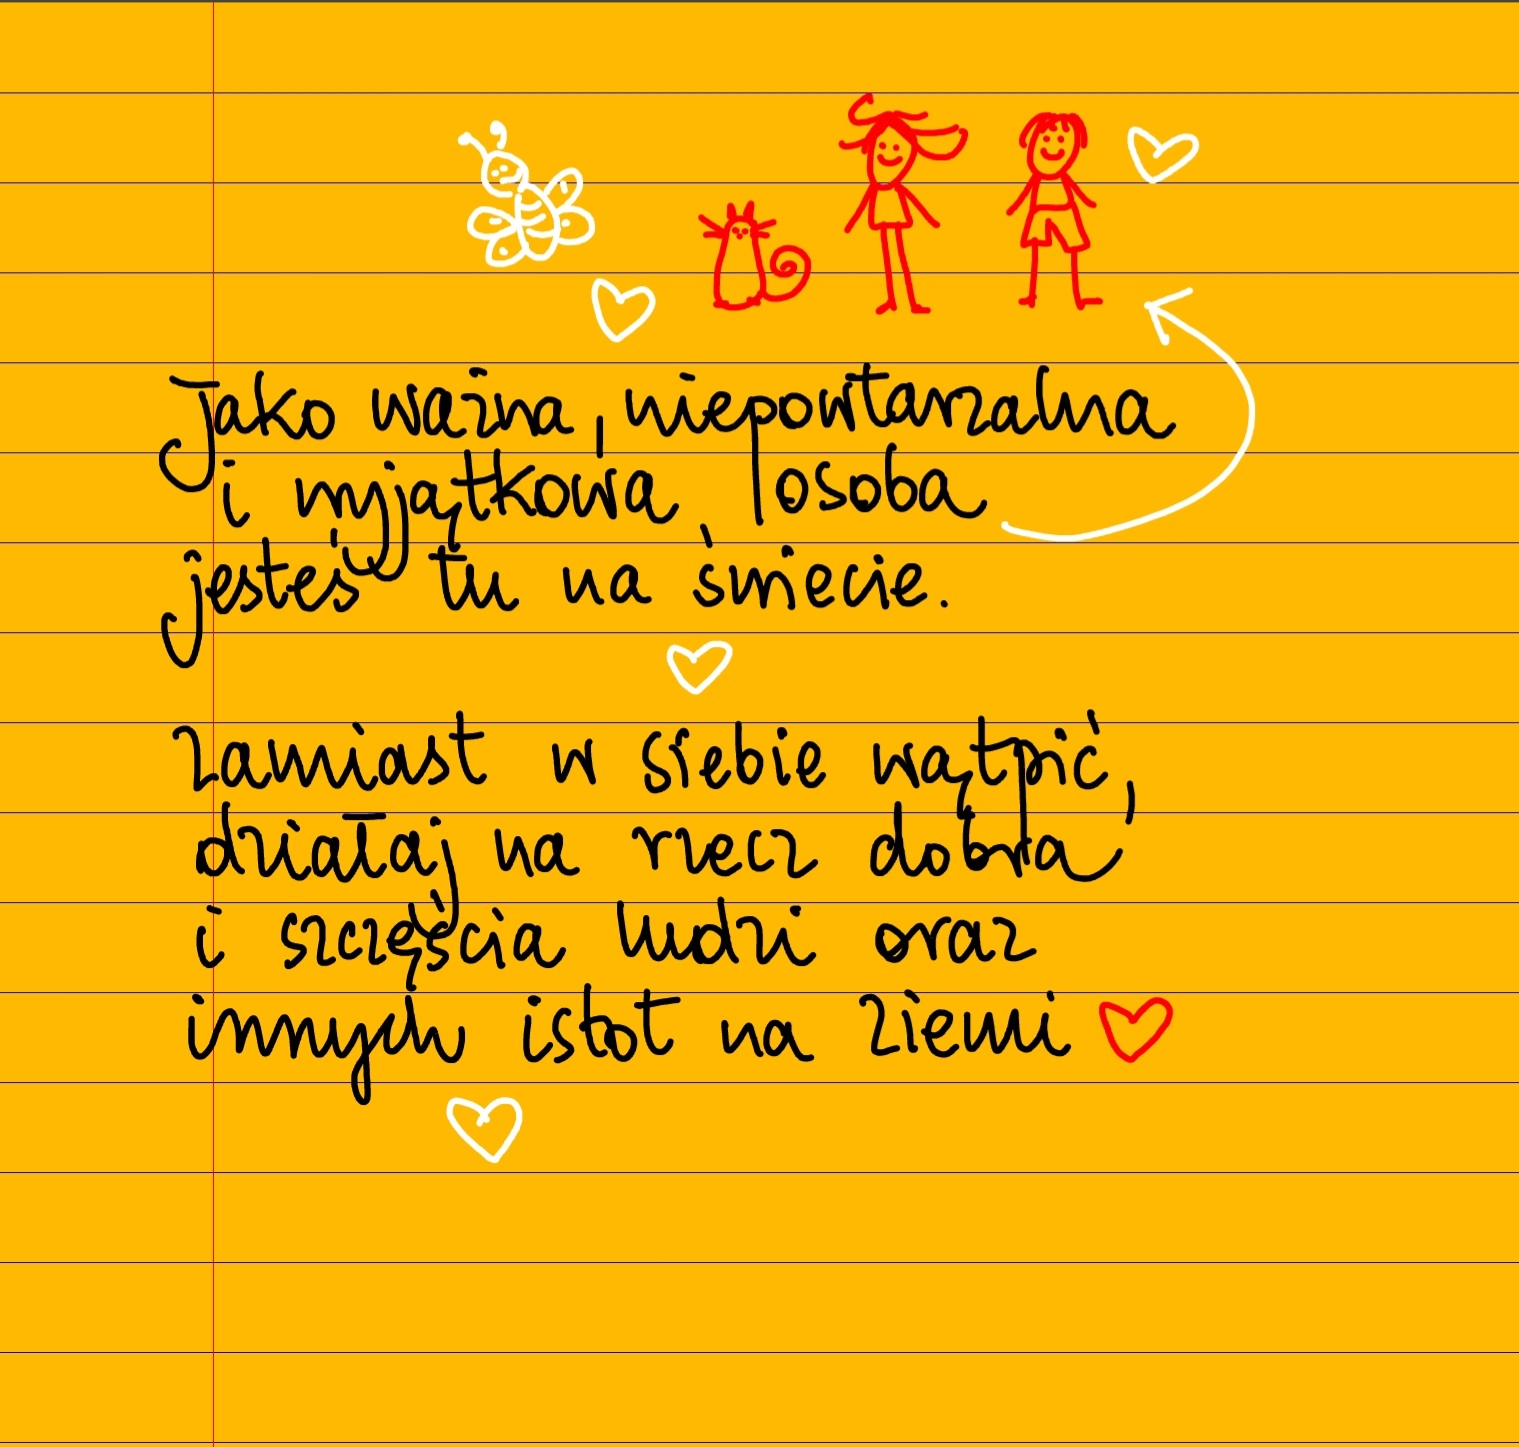 Jako ważna, niepowtarzalna
i wyjątkowa osoba
jesteś tu na świecie.
Zamiast w siebie wątpić,
działaj na rzecz dobra
i szczęścia ludzi oraz
innych istot na Ziemi